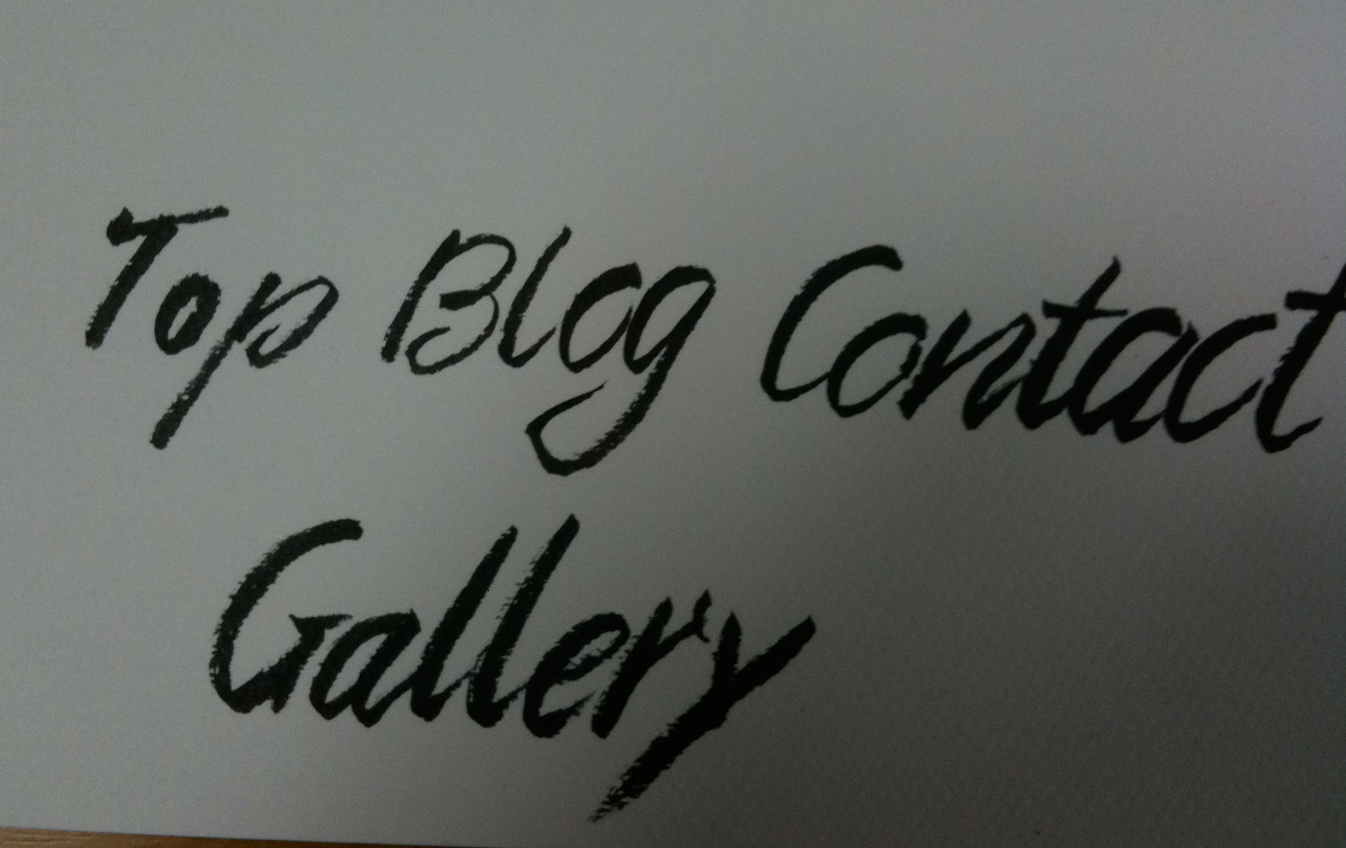 Top Blog Contact
Gallery